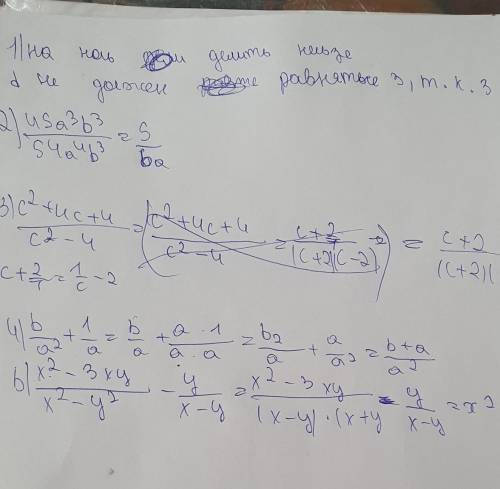 1) на ноль делить нельзе
d не должен равняться 3, т.к. 3
2) 45a³b³/54a⁴b³ = 5/6a
3) c²+4c+4/c²-4 = (c²+4c+4/c²-4 = c+2/(c+2)(c-2)) = c+2/(c+2)(
c+2/1 = 1/c - 2
4) b/a² + 1/a = b/a + a·1/a·a = b2/a + a/a² = b+a/a²
6) x²-3xy/x²-y² - y/x-y = x²-3xy/(x-y)·(x+y - y/x-y = x²